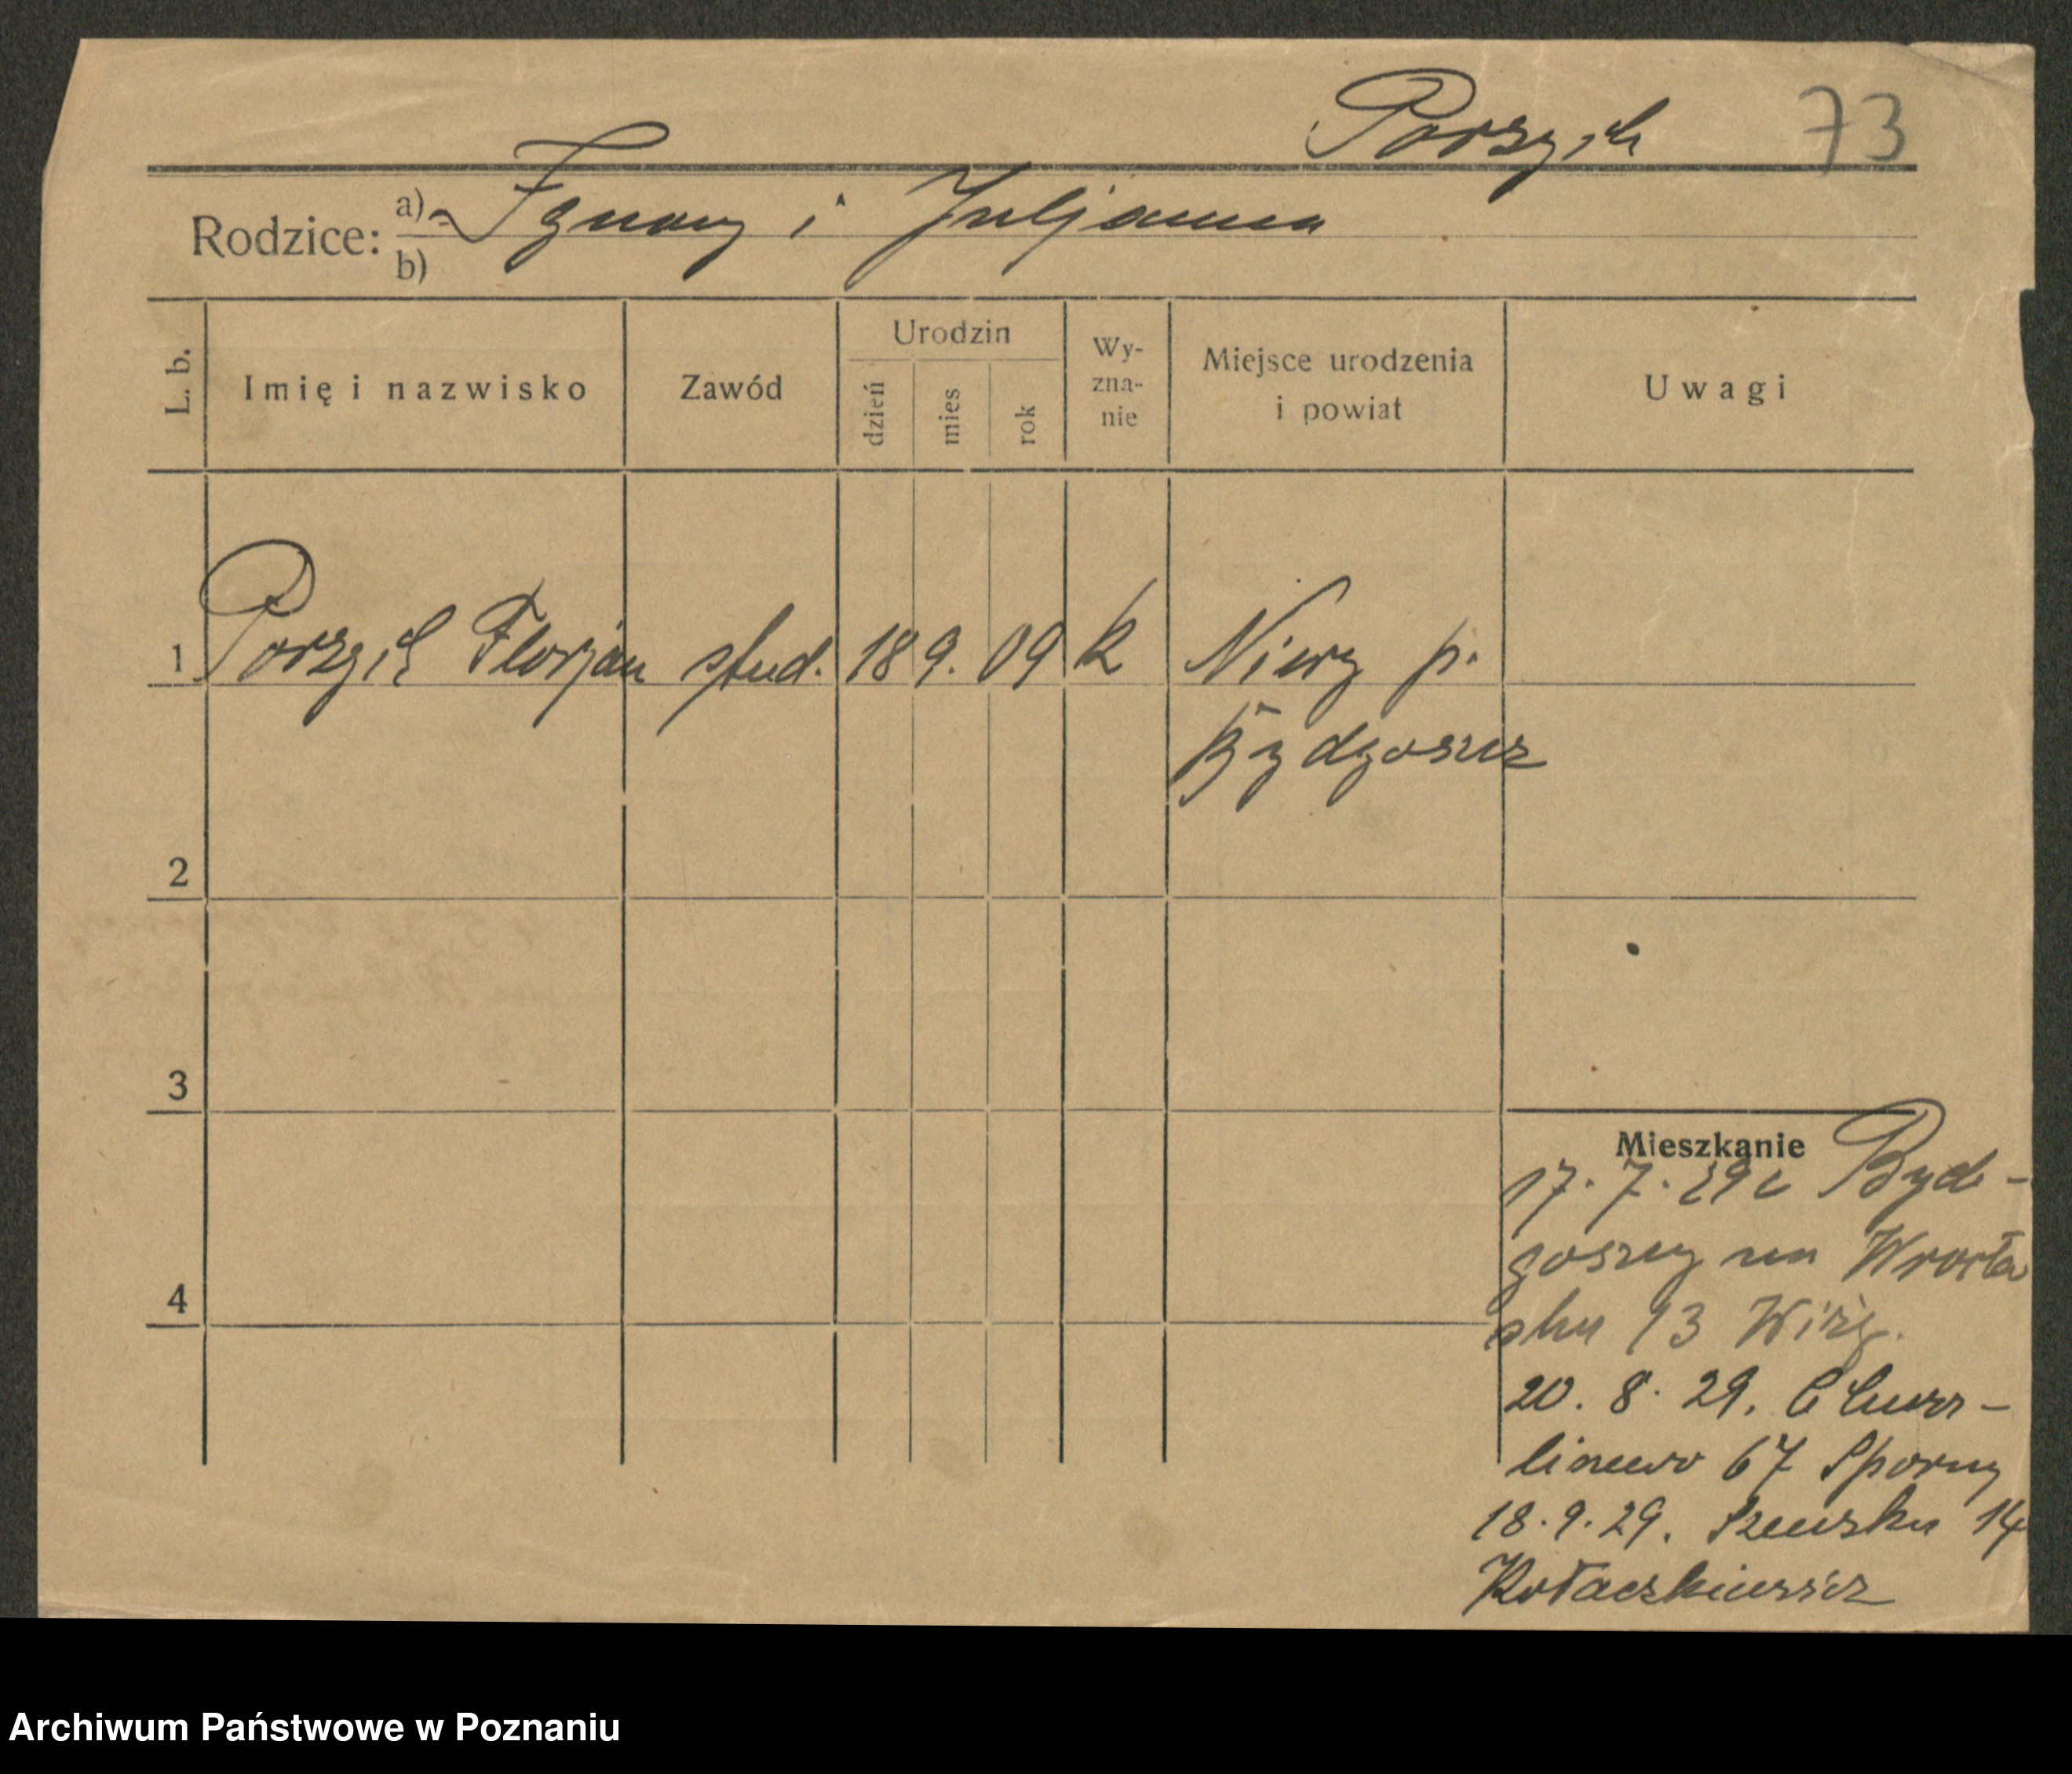 Porzych 73
Rodzice: a) Ignacy i Juljanna
b)
L. b.
Imię i nazwisko
Zawód
Urodzin
dzień
mies
rok
Wy-
zna-
nie
Miejsce urodzenia
i powiat
Uwagi
1 Porzych Florjan stud. 18 9. 09 k Niwy p.
Bydgoszcz
2
3
4
Mieszkanie
17. 7. 29 z Byd-
goszczy na Wrocła
ska 13
20. 8. 29.
67
18. 9. 29. Szewska 14
Kołaczkiewicz
Archiwum Państwowe w Poznaniu